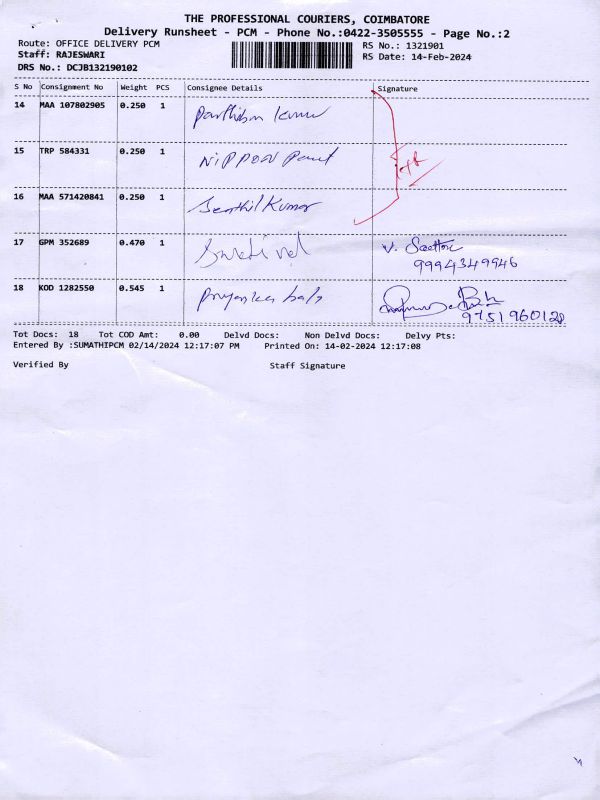 THE PROFESSIONAL COURIERS, COIMBATORE
Delivery Runsheet - PCM - Phone No.:0422-3505555 - Page No.:2
Route: OFFICE DELIVERY PCM RS No.: 1321901
Staff: RAJESWARI RS Date: 14-Feb-2024
DRS No.: DCJB132190102
S No Consignment No Weight PCS Consignee Details Signature
14 MAA 107802905 0.250 1 Parthiban Kumar
15 TRP 584331 0.250 1 NIPPON Paint
16 MAA 571420841 0.250 1 Senthil Kumar
17 GPM 352689 0.470 1 V.
9994349946
18 KOD 1282550 0.545 1 Priyanka
9751960128
Tot Docs: 18 Tot COD Amt: 0.00 Delvd Docs: Non Delvd Docs: Delvy Pts:
Entered By :SUMATHIPCM 02/14/2024 12:17:07 PM Printed On: 14-02-2024 12:17:08
Verified By Staff Signature